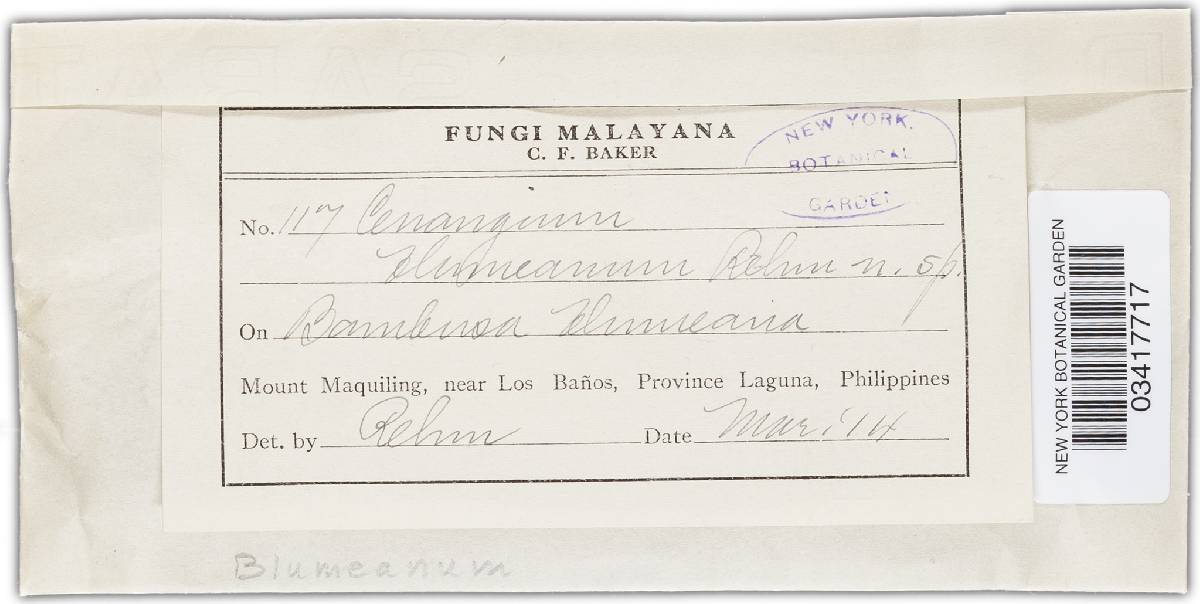 FUNGI MALAYANA
C. F. BAKER
NEW YORK
BOTANICAL
GARDEN
No. 117 Cenangium
blumeanum Rehm n. sp.
On Bambusa blumeana
Mount Maquiling, near Los Baños, Province Laguna, Philippines
Det. by Rehm Date Mar. '14
Blumeanum
NEW YORK BOTANICAL GARDEN
03417717